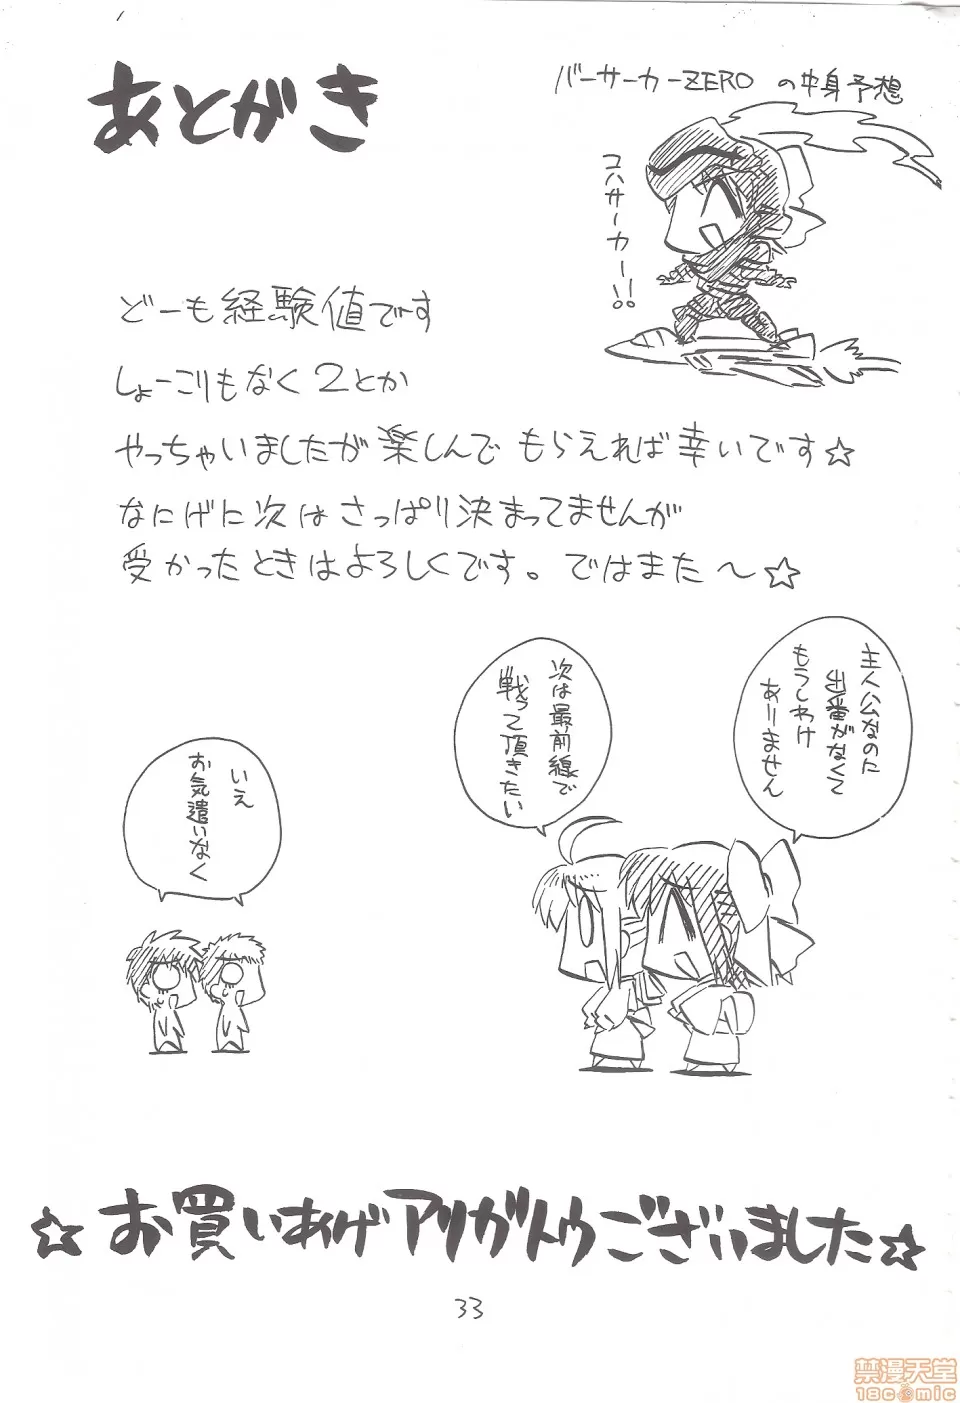 あとがき
バーサーカーZERO の中身予想
コハサーカー!!
どーも経験値です
しょーこりもなく2とか
やっちゃいましたが楽しんで もらえれば幸いです☆
なにげに次はさっぱり決まってませんが
受かったときはよろしくです。ではまた～☆
主人公なのに
出番がなくて
もうしわけ
あーりません
次は最前線で
戦って頂きたい
いえ
お気遣いなく
☆お買いあげアリガトウございました☆
33
禁漫天堂
18comic